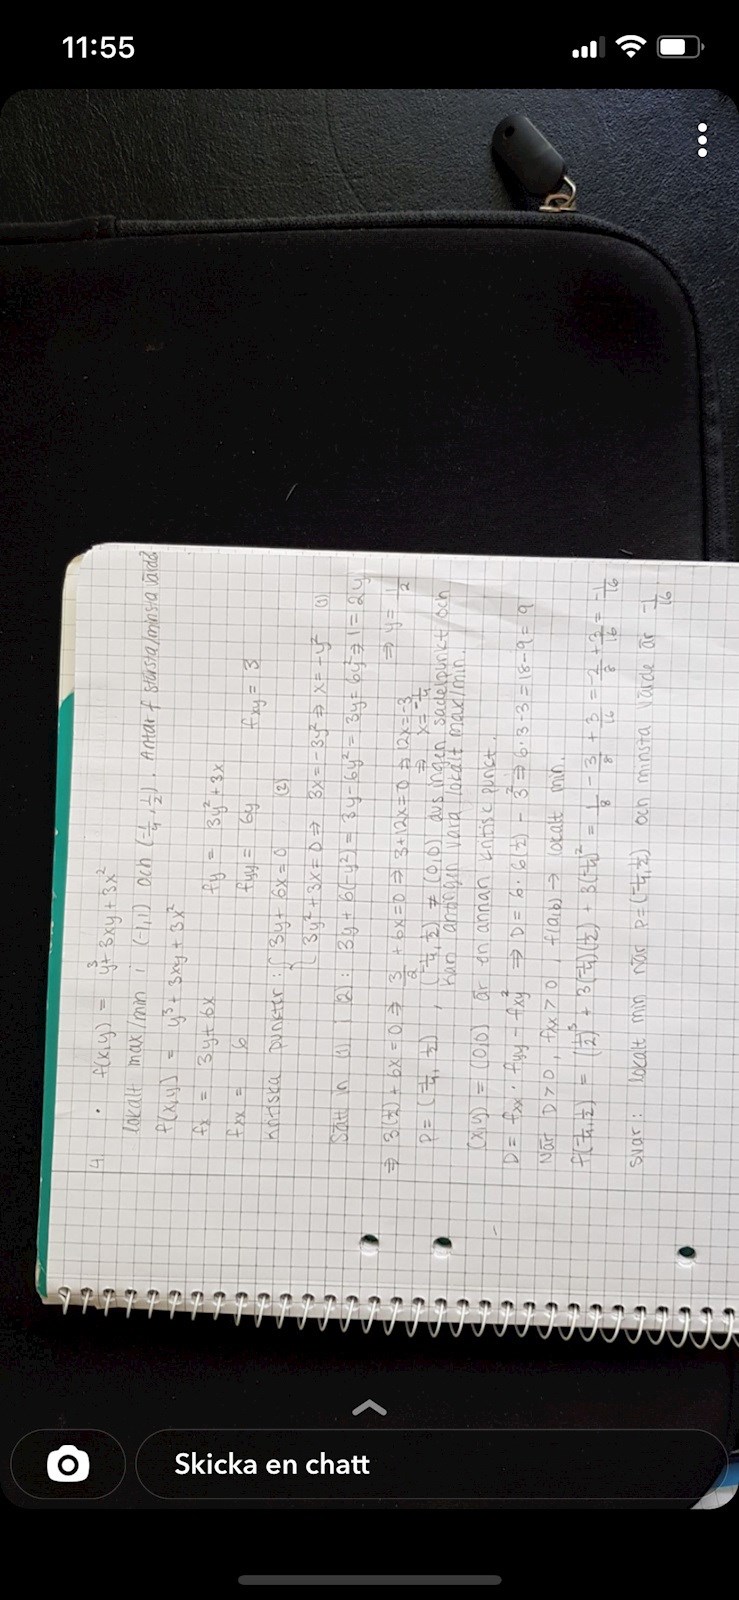 11:55
4. • f(x,y) = y³ + 3xy + 3x²
lokalt max/min i (-1,1) och (-1/4, 1/2). Antar f största/minsta värde
f(x,y) = y³ + 3xy + 3x²
fx = 3y + 6x fy = 3y² + 3x
fxx = 6 fyy = 6y fxy = 3
kritiska punkter: { 3y + 6x = 0 (2)
{ 3y² + 3x = 0 ⇒ 3x = -3y² ⇒ x = -y² (1)
Sätt in (1) i (2): 3y + 6(-y²) = 3y - 6y² = 3y = 6y² ⇒ 1 = 2y
⇒ y = 1/2
⇒ 3(1/2) + 6x = 0 ⇒ 3/2 + 6x = 0 ⇒ 3 + 12x = 0 ⇒ 12x = -3
⇒ x = -1/4
P = (-1/4, 1/2), (-1/4, 1/2) ≠ (0,0) dvs ingen sadelpunkt och
kan antingen vara lokalt max/min.
(x,y) = (0,0) är en annan kritisk punkt.
D = fxx · fyy - fxy² ⇒ D = 6 · 6(1/2) - 3² ⇒ 6·3-3 = 18-9 = 9
När D > 0, fxx > 0, f(a,b) → lokalt min.
f(-1/4, 1/2) = (1/2)³ + 3(-1/4)(1/2) + 3(-1/4)² = 1/8 - 3/8 + 3/16 = -2/8 + 3/16 = -1/16
Svar: lokalt min när P = (-1/4, 1/2) och minsta värde är -1/16
Skicka en chatt